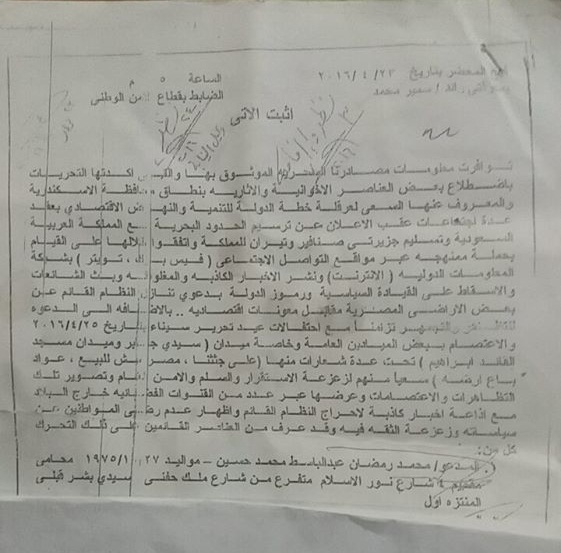 فتح المحضر بتاريخ ٢٣/٤/٢٠١٦ الساعة ٥ م
سمير محمد الضابط بقطاع الأمن الوطني
اثبت الاتى
توافرت معلومات مصادرنا السرية الموثوق بها والتي أكدتها التحريات
باضطلاع بعض العناصر الاخوانية والاثارية بنطاق محافظة الاسكندرية
والمعروف عنها السعى لعرقلة خطة الدولة للتنمية والنهوض الاقتصادي بعقد
عدة اجتماعات عقب الاعلان عن ترسيم الحدود البحرية مع المملكة العربية
السعودية وتسليم جزيرتي صنافير وتيران للمملكة واتفقوا خلالها على القيام
بحملة ممنهجه عبر مواقع التواصل الاجتماعى ( فيس بك ، تويتر ) بشبكة
المعلومات الدوليه ( الانترنت ) ونشر الاخبار الكاذبه والمغلوطه وبث الشائعات
والاسقاط على القيادة السياسية ورموز الدولة بدعوي تنازل النظام القائم عن
بعض الاراضى المصرية مقابل معونات اقتصاديه .. بالاضافه الى الدعوه
للتظاهر والتجمهر تزامناً مع احتفالات عيد تحرير سيناء بتاريخ ٢٥/٤/٢٠١٦
والاعتصام ببعض الميادين العامة وخاصة ميدان ( سيدي جابر وميدان مسجد
القائد ابراهيم ) تحت عدة شعارات منها ( على جثتنا ، مصر مش للبيع ، عواد
باع ارضه ) سعياً منهم لزعزعة الاستقرار والسلم والامن العام وتصوير تلك
التظاهرات والاعتصامات وعرضها عبر عدد من القنوات الفضائيه خارج البلاد
مع اذاعة اخبار كاذبة لاحراج النظام القائم واظهار عدم رضى المواطنين عن
سياساته وزعزعة الثقه فيه وقد عرف من العناصر القائمين على تلك التحرك
كل من :
المدعو / محمد رمضان عبدالباسط محمد حسين – مواليد ٢٧/١٠/١٩٧٥ محامى
مقيم ٤ شارع نور الاسلام متفرع من شارع ملك حفنى سيدي بشر قبلى
المنتزه اول